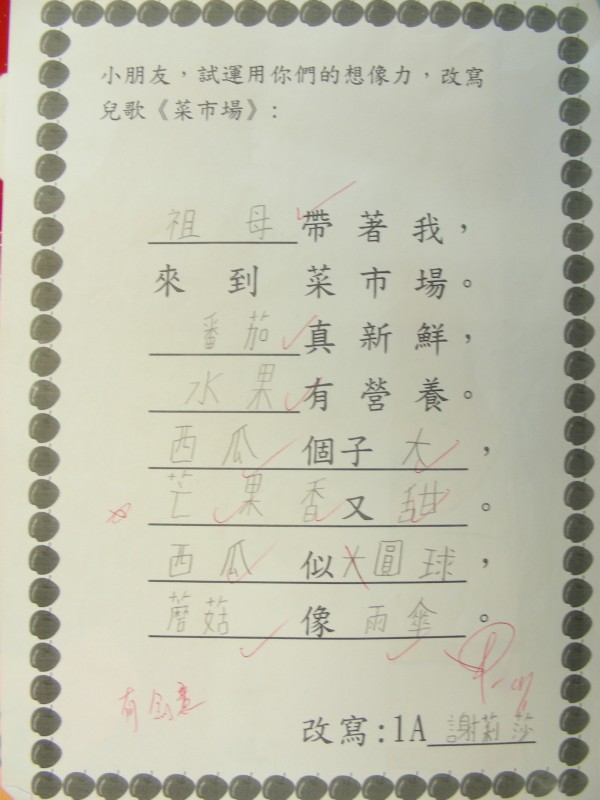 小朋友，試運用你們的想像力，改寫
兒歌《菜市場》:
祖母帶著我，
來到菜市場。
番茄真新鮮，
水果有營養。
西瓜個子大，
芒果香又甜。
西瓜似大圓球，
蘑菇像雨傘。
有創意
改寫:1A謝莉莎